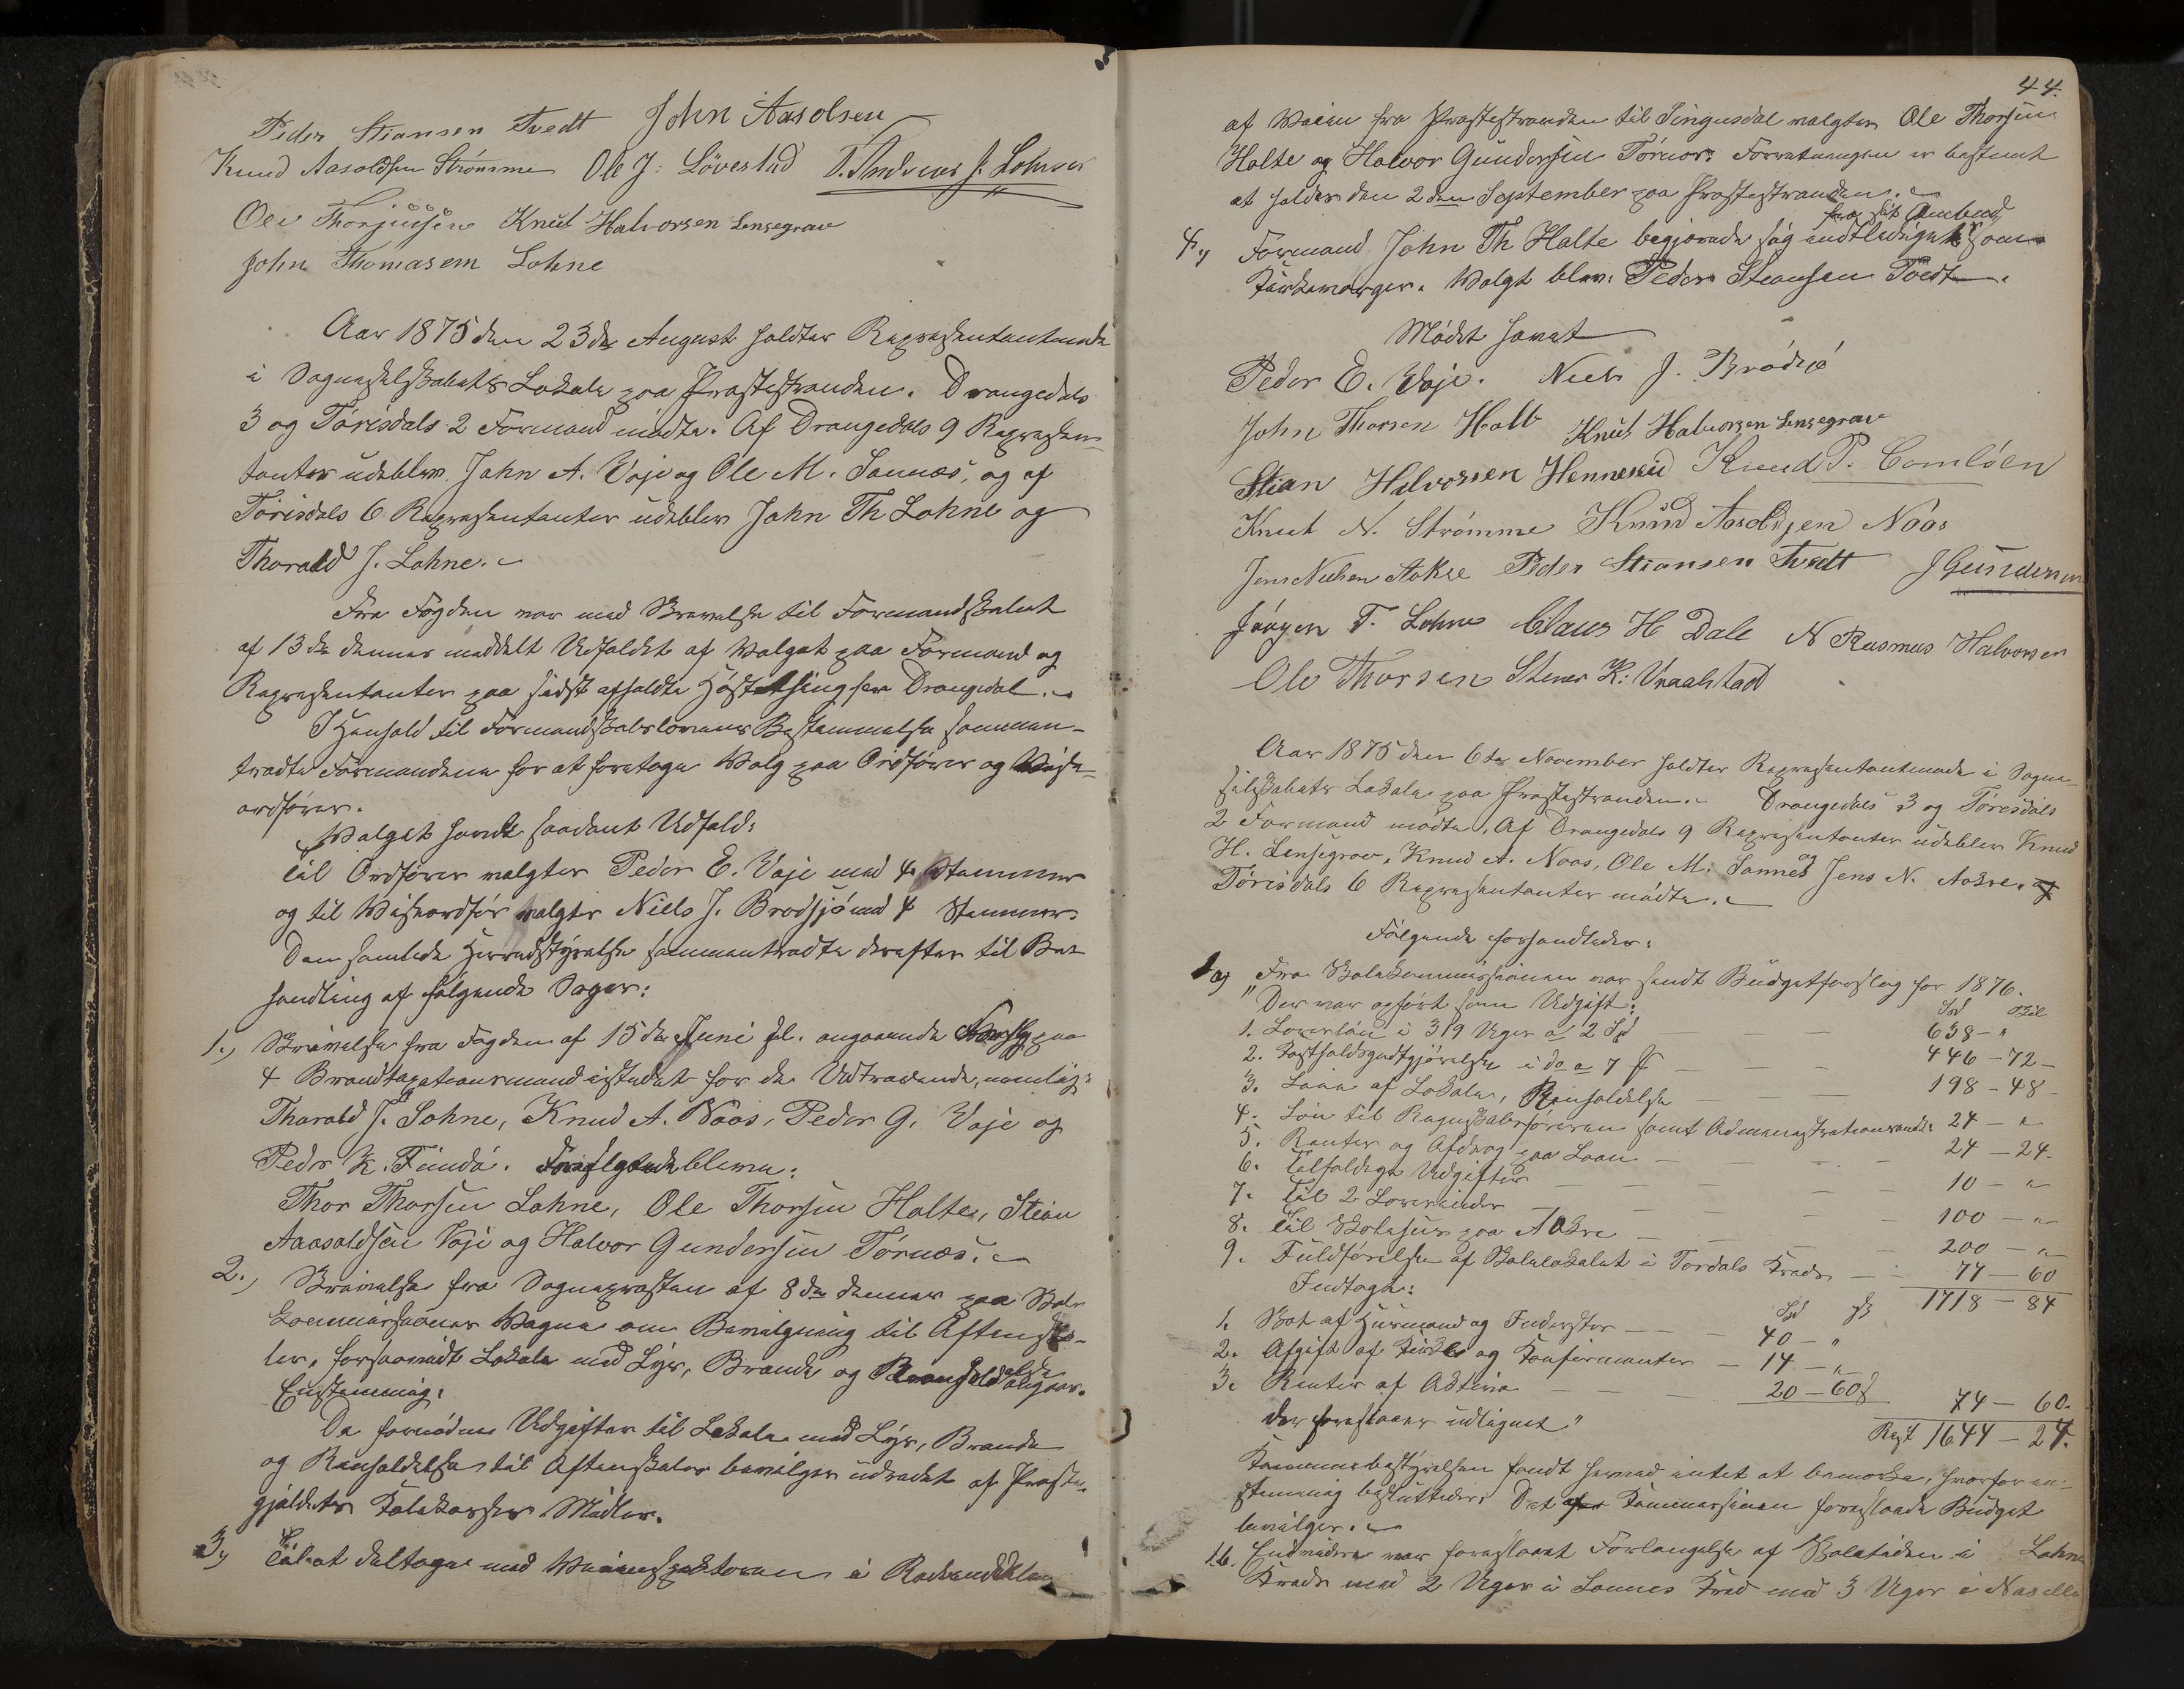 Peder Stiansen Tvedt John Aasolsen
Knud Aasoldsen Strømme Ole J: Løvestad T. Andreas J. Lohne
Ole Thorjussen Knut Halvorsen Lensegrav
John Thomasem Lohne
Aar 1875 den 23de August holdtes Repræsentantmøde
i Sogneselskabets Lokale paa Præstestranden. Drangedals
3 og Tørisdals 2 Formænd mødte. Af Drangedals 9 Repræsen-
tanter udeblev John A. Voje og Ole M. Sannæs, og af
Tørisdals 6 Repræsentanter udeblev John Th Lohne og
Thorald J. Lohne.
Fra Fogden var med Skrivelse til Formandskabet
af 13de dennes meddelt Udfaldet af Valget paa Formænd og
Repræsentanter paa sidst afholdte Høstthing for Drangedal.
I Henhold til Formandskabslovens Bestemmelse sammen-
traadte Formændene for at foretage Valg paa Ordfører og Vise-
ordfører.
Valget havde saadant Udfald:
Til Ordfører valgtes Peder E. Voje med 4 Stemmer
og til Viseordfør valgtes Niels J. Brødsjø med 4 Stemmer.
Den samlede Herredstyrelse sammentraadte derefter til Be-
handling af følgende Sager:
1., Skrivelse fra Fogden af 15de Juni sl. angaaende Forslag paa
4 Brandtaxationsmænd istedet for de Udtrædende, nemlig:
Tharald J. Lohne, Knud A. Naas, Peder G. Voje og
Peder K. Fundø. Foreslaaede bleve:
Thor Thorsen Lohne, Ole Thorsen Holte, Stian
Aasoldsen Voje og Halvor Gundersen Tørnæs.
2., Skrivelse fra Sognepræsten af 8de dennes paa Skole-
kommissionens Vegne om Bevilgning til Aftensko-
ler, forsaavidt Lokale med Lys, Brænde og Renholdelse angaar.
Enstemmig:
De fornødne Udgifter til Lokale med Lys, Brænde
og Renholdelse til Aftenskoler bevilges udredet af Præste-
gjældets Skolekasses Midler.
3., Til at deltage med Veiinspektøren i
44.
af Veien fra Præstestranden til Tingusdal valgtes Ole Thorsen
Holte og Halvor Gundersen Tørnæs. Forretningen er bestemt
at holdes den 2den September paa Præstestranden.
fra sit Ombud
4., Formand John Th Holte begjærede sig entlediget som
Kirkeværger. Valgt blev: Peder Stiansen Tvedt.
Mødet hævet
Peder E. Voje. Niels J. Brødsjø
John Thorsen Holte Knut Halvorsen Lensegrav
Stian Halvorsen Henneseid Knud P.
Knut N. Strømme Knud Aasoldsen Naas
Jens Nielsen Aakre Peder Stiansen Tvedt J Gundersen
Jørgen T. Lohne Claus H Dale N Rasmus Halvorsen
Ole Thorsen Stener K: Vraalstad
Aar 1875 den 6te November holdtes Repræsentantmøde i Sogne-
selskabets Lokale paa Præstestranden. Drangedals 3 og Tørisdals
2 Formænd mødte. Af Drangedals 9 Repræsentanter udeblev Knud
H. Lensegrav, Knud A. Naas, Ole M. Sannes og Jens N. Aakre. Af
Tørisdals 6 Repræsentanter mødte.
Følgende forhandledes:
1 a) Fra Skolekommissionen var sendt Budgetforslag for 1876.
"Der var opført som Udgift: Spd Skil
1. Lærerløn i 319 Uger a 2 Spd — — 638 - "
2. Kostholdsgodtgjørelse i do a 7 — 446 - 72 -
3. Leie af Lokale, Renholdelse — — — 198 - 48 -
4. Løn til Regnskabsføreren samt Administrationsudg. 24 - "
5. Renter og Afdrag paa Laan — — — 24 - 24.
6. Tilfældige Udgifter — — — 10 - "
7. Til 2 Lærerinder — — — 100 - "
8. Til Skolehus paa Aakre — — — 200 - "
9. Fuldførelse af Skolelokalet i Tordals Kreds — 77 - 60
Indtægt: 1718 - 84
Spd ß
1. Skat af Husmænd og Inderster — — 40 - "
2. Afgift af Kirke og Konfirmanter — 14 - "
3. Renter af Aktiva — — 20 - 60ß 74 - 60.
der foreslaaes udlignet" Rest 1644 - 24.
Kommunebestyrelsen fandt herved intet at bemærke, hvorfor en-
stemmig besluttedes: Det af Kommissionen foreslaaede Budget
bevilges.
1 b. Endvidere var foreslaaet Forlængelse af Skoletiden i Lohne
Kreds med 2 Uger i Sannes Kred med 3 Uger i